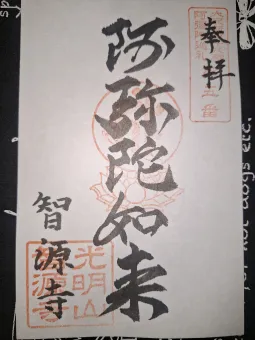 奉拝
阿弥陀如来
智源寺
光明山
for hot dogs etc.